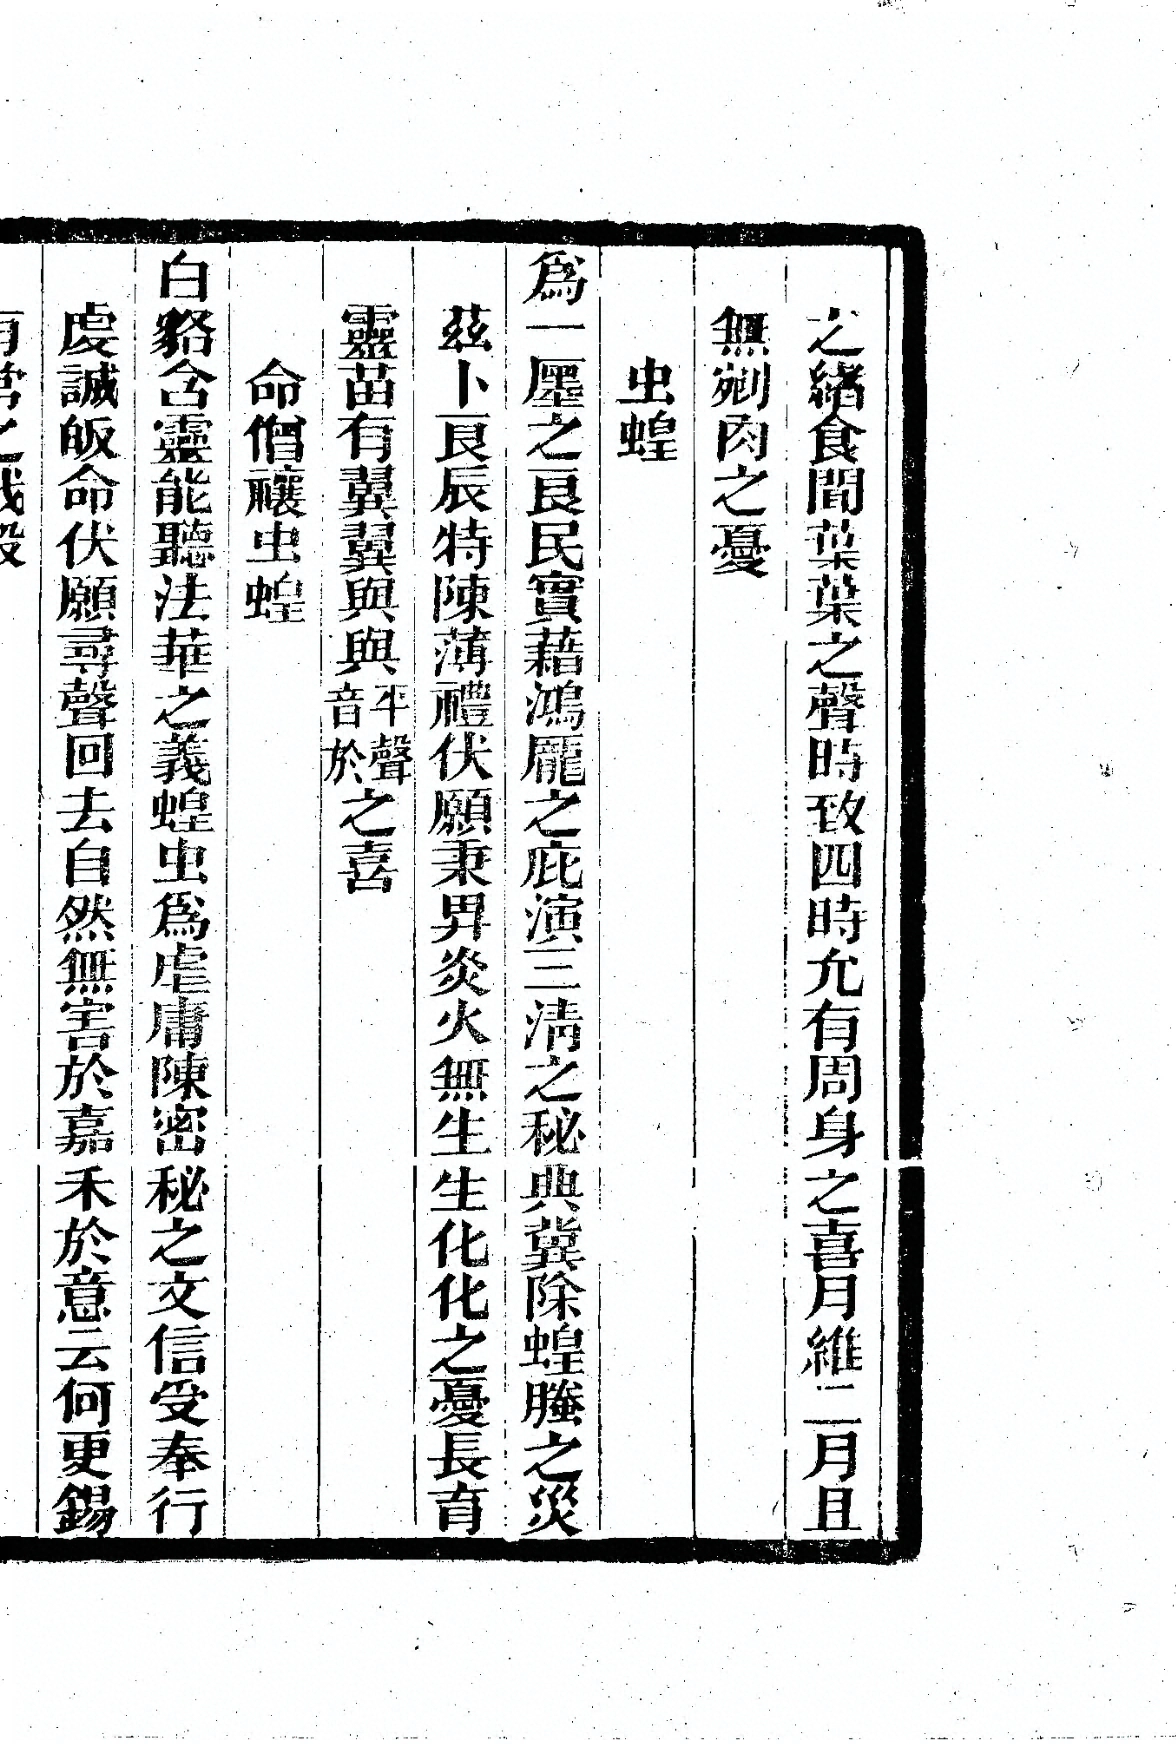 之緒食間葉葉之聲時致四時允有周身之喜月維二月且
無剜肉之憂
虫蝗
爲一廛之良民實藉鴻龎之庇演三淸之秘典冀除蝗螣之災
茲卜良辰特陳薄禮伏願秉畀炎火無生生化化之憂長育
靈苗有翼翼與與平聲音於之喜
命僧禳虫蝗
白豞含靈能聽法華之義蝗虫爲虐庸陳密秘之文信受奉行
虔誠皈命伏願尋聲回去自然無害於嘉禾於意云何更錫